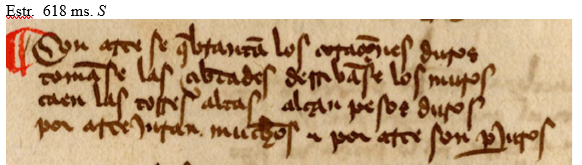 Estr. 618 ms. S
Con arte se q̃brantã los corações duros
tomãse las çibdades derribãse los muros
caen las torres altas alçan pesos duros
por arte juran muchos e por arte son pjuros